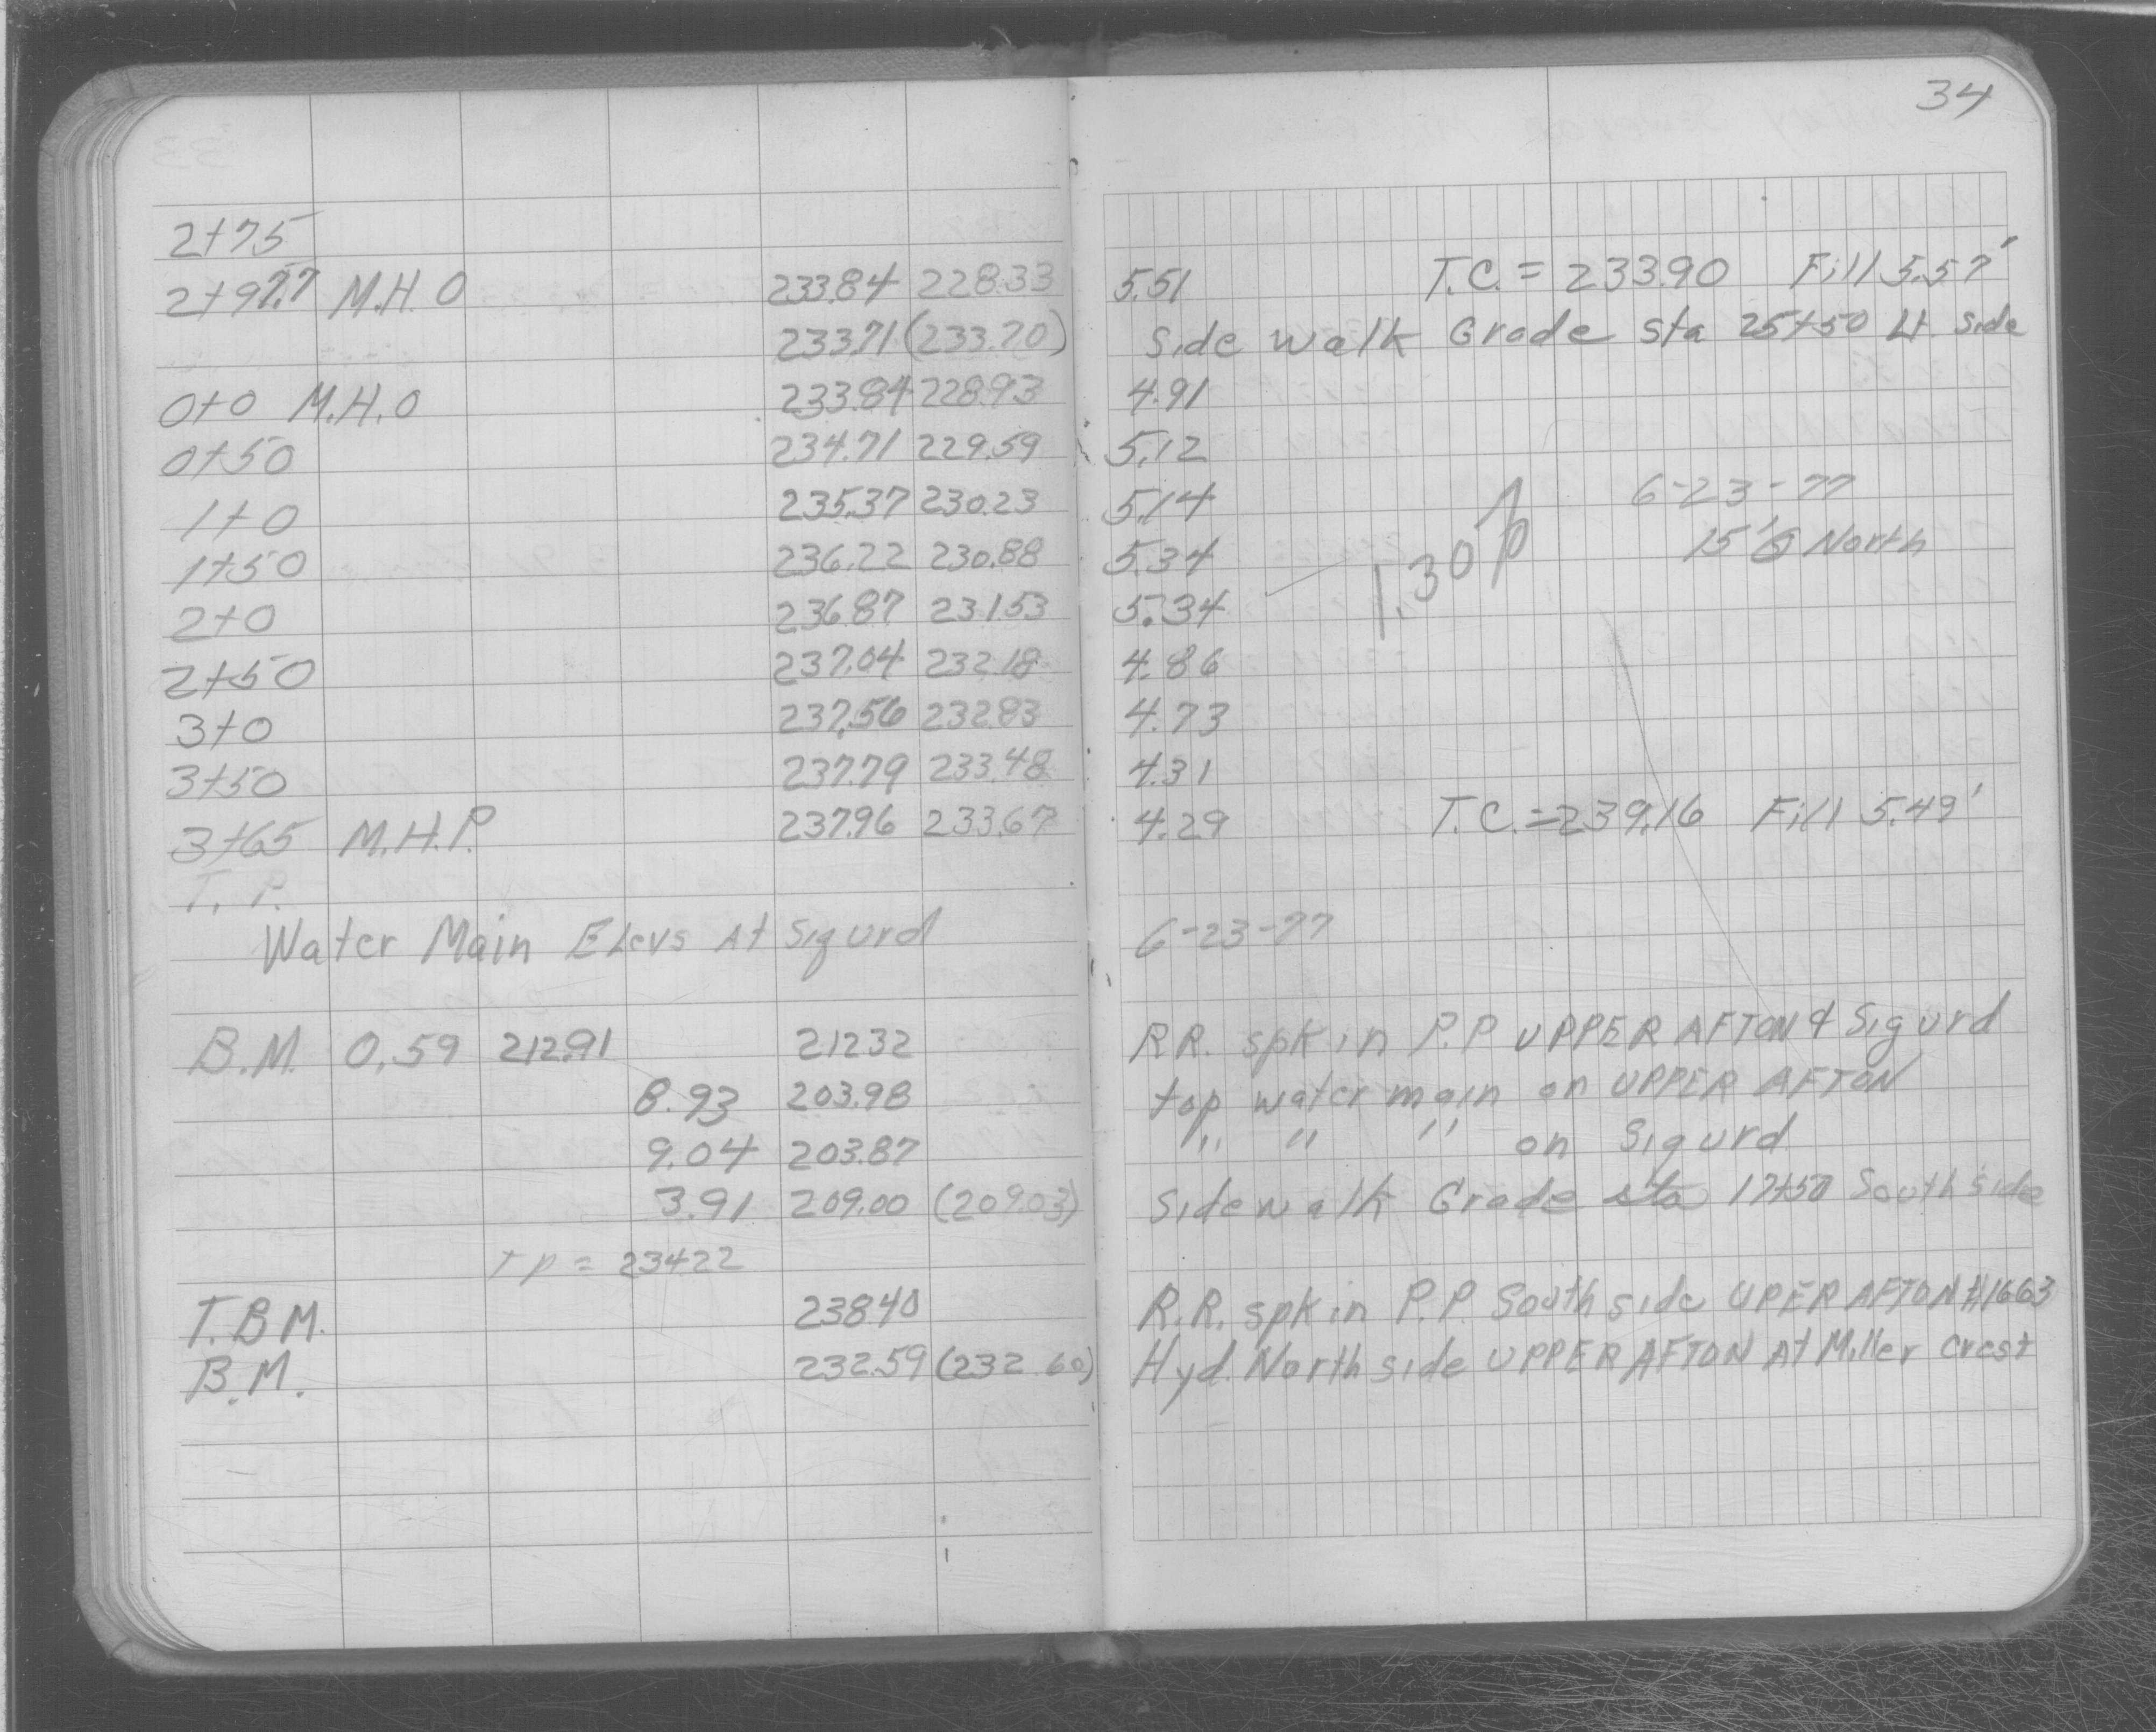 34
2+75
2+97.7 M.H.O 233.84 228.33 5.51 T.C. = 233.90 Fill 5.57'
233.71 (233.70) Side walk Grade Sta 25+50 Lt. Side
0+0 M.H.O 233.84 228.93 4.91
0+50 234.71 229.59 5.12
1+0 235.37 230.23 5.14 6-23-77
1+50 236.22 230.88 5.34 15' North
2+0 236.87 231.53 5.34 1.30
2+50 237.04 232.18 4.86
3+0 237.56 232.83 4.73
3+50 237.79 233.48 4.31
3+65 M.H.P. 237.96 233.67 4.29 T.C. = 239.16 Fill 5.49'
T.P.
Water Main Elevs At Sigurd 6-23-77
B.M. 0.59 212.91 212.32 RR. spk in P.P UPPER AFTON & Sigurd
8.93 203.98 top water main on UPPER AFTON
9.04 203.87 " " " on Sigurd
3.91 209.00 (209.03) Sidewalk Grade sta 17+50 South side
TP = 234.22
T.B.M. 238.40 R.R. spk in P.P. South side UPER AFTON #1663
B.M. 232.59 (232.60) Hyd. North side UPPER AFTON At Miller Crest